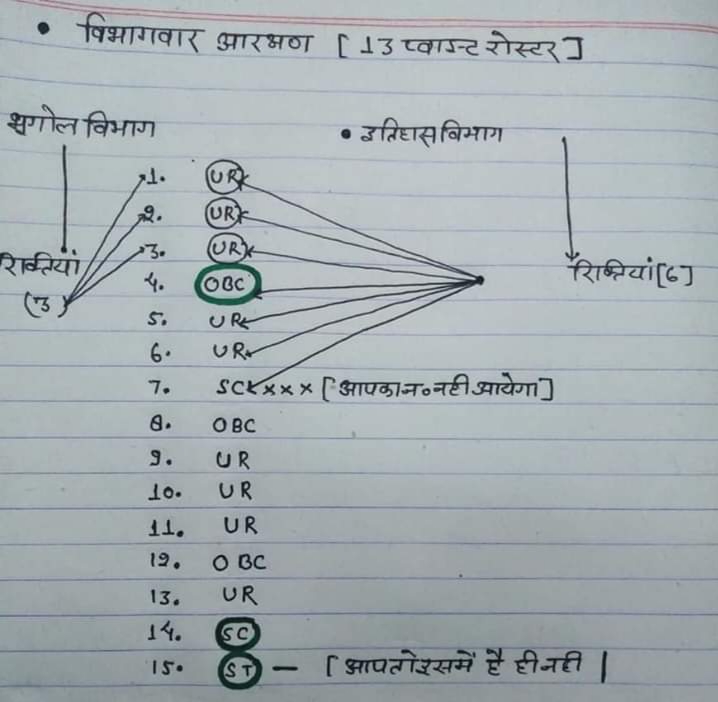 • विभागवार आरक्षण [13 प्वाइन्ट रोस्टर]
भूगोल विभाग
• इतिहास विभाग
रिक्तियां
(3)
रिक्तियां [6]
1. UR
2. UR
3. UR
4. OBC
5. UR
6. UR
7. SC ××× [आपका न० नही आयेगा]
8. OBC
9. UR
10. UR
11. UR
12. OBC
13. UR
14. SC
15. ST — [आप तो इसमें है ही नही |